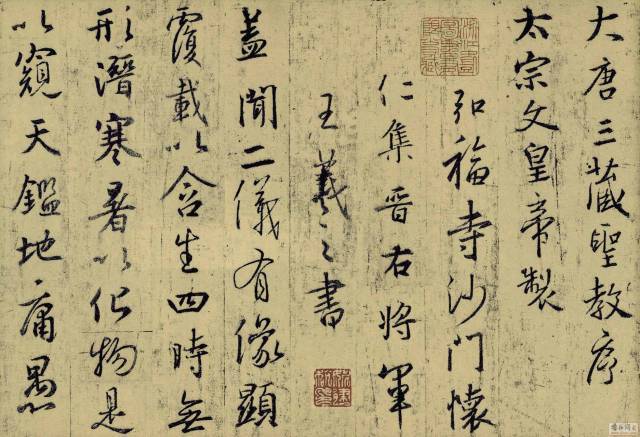 大唐三藏聖教序
太宗文皇帝製
弘福寺沙门懷
仁集晋右將軍
王羲之書
盖聞二儀有像顯
覆載以含生四時無
形潛寒暑以化物是
以窺天鑑地庸愚